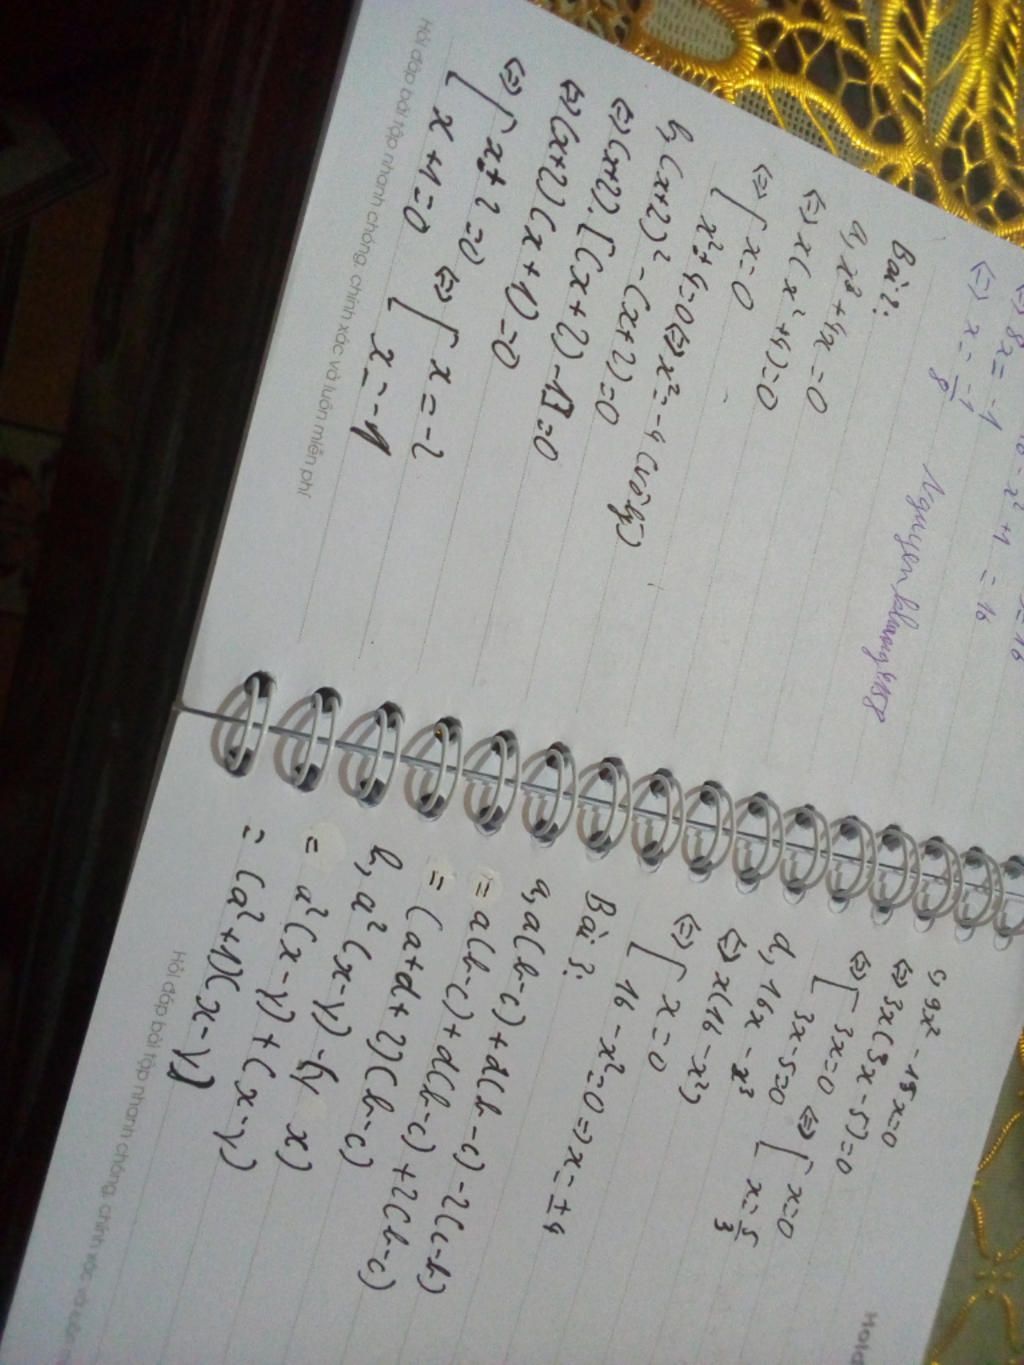 = 16
16 - x² + 1 = 16
⇔ 8x = -1
⇔ x = -1/8
Nguyenkhuong1458
Bài 2:
a, x³ + 4x = 0
⇔ x(x² + 4) = 0
⇔ [ x = 0
x² + 4 = 0 ⇔ x² = -4 (vô lý)
b, (x+2)² - (x+2) = 0
⇔ (x+2).[(x+2)-1] = 0
⇔ (x+2)(x+1) = 0
⇔ [ x + 2 = 0 ⇔ [ x = -2
x + 1 = 0 x = -1
Hỏi đáp bài tập nhanh chóng, chính xác và luôn miễn phí
c, 9x² - 15x = 0
⇔ 3x(3x - 5) = 0
⇔ [ 3x = 0 ⇔ [ x = 0
3x - 5 = 0 x = 5/3
d, 16x - x³
⇔ x(16 - x²)
⇔ [ x = 0
16 - x² = 0 => x = ±4
Bài 3:
a, a(b-c) + d(b-c) - 2(c-b)
= a(b-c) + d(b-c) + 2(b-c)
= (a+d+2)(b-c)
b, a²(x-y) - (y x)
= a²(x-y) + (x-y)
= (a²+1)(x-y)
Hỏi đáp bài tập nhanh chóng, chính xác và luôn